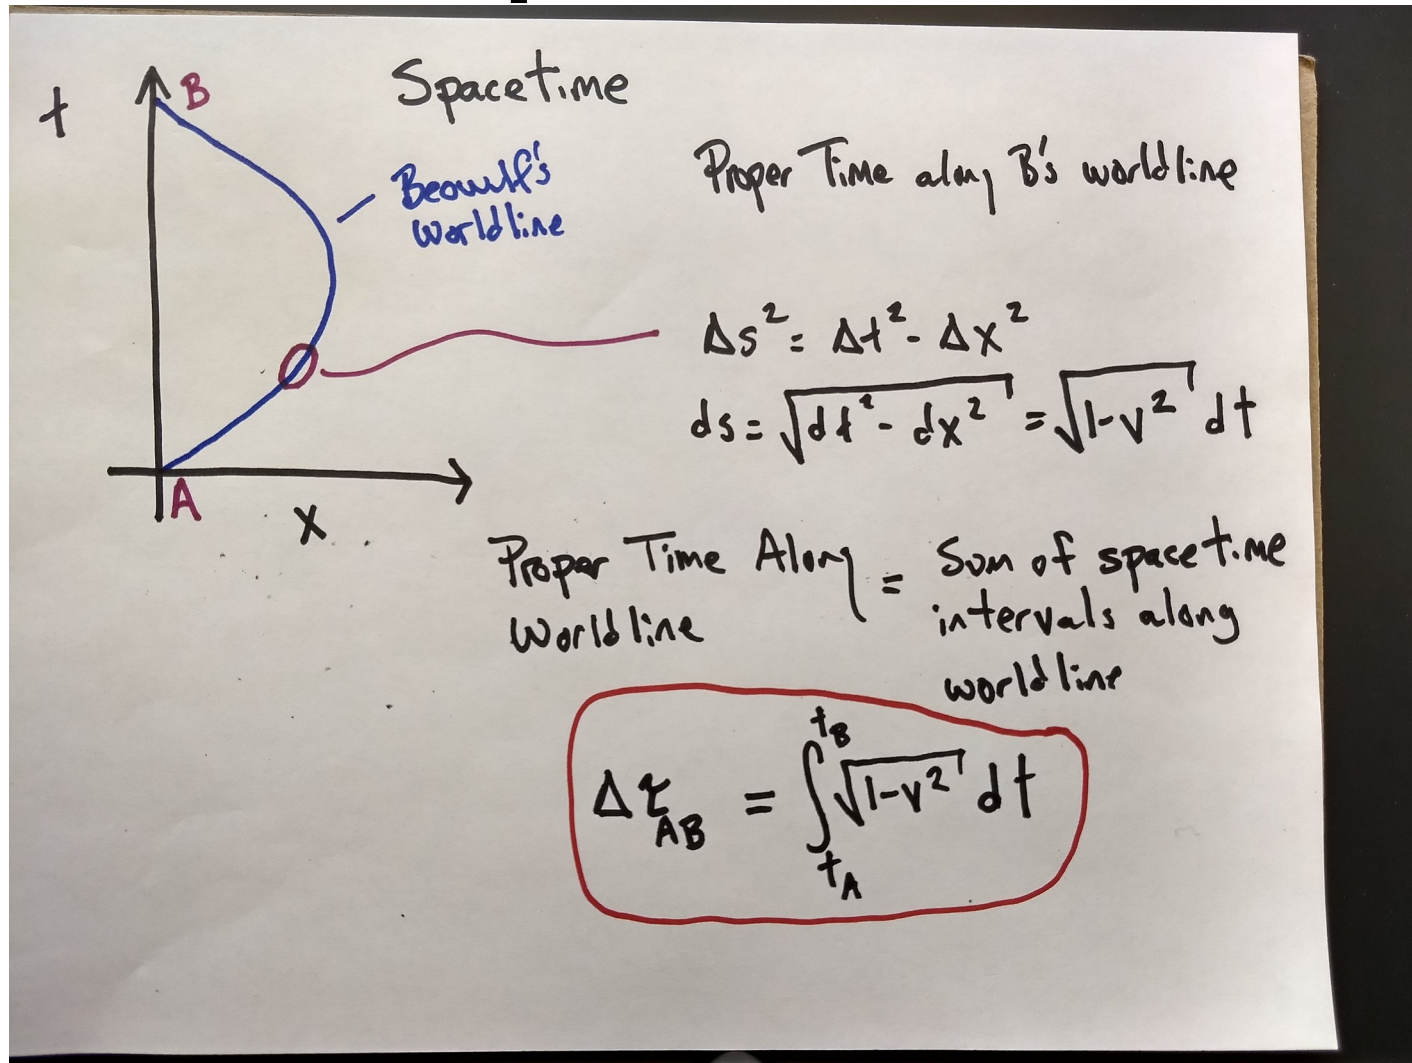 Spacetime
t
B
Beowulf's
worldline
A
x
Proper Time along B's worldline
Δs² = Δt² - Δx²
ds = √(dt² - dx²) = √(1-v²) dt
Proper Time Along = Sum of spacetime
Worldline intervals along
worldline
Δτ_AB = ∫_{t_A}^{t_B} √(1-v²) dt